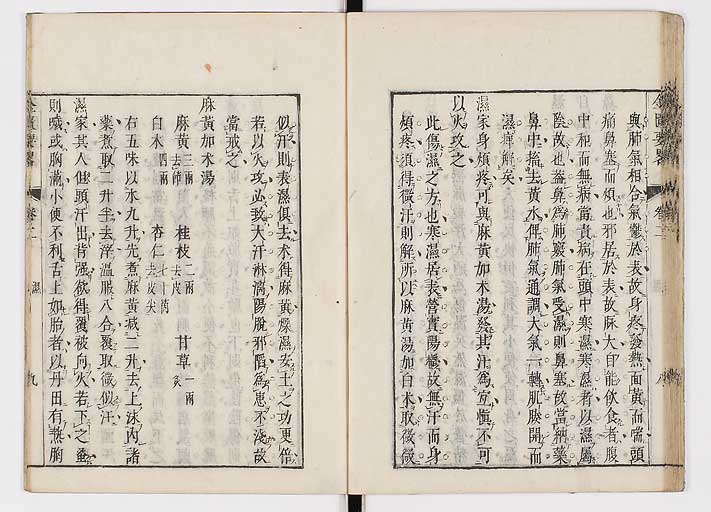 與肺氣相合氣鬱於表故身疼發熱面黃而喘頭
痛鼻塞而煩也邪居於表故脉大自能飲食者腹
中和而無病當責病在頭中寒濕寒濕者以濕屬
陰故也蓋鼻爲肺竅肺氣受濕則鼻塞故當納藥
鼻中搐去黃水俾肺氣通調大氣一轉肌腠開而
濕痺解矣
濕家身煩疼可與麻黃加朮湯發其汗爲宜愼不可
以火攻之
此傷濕之方也寒濕居表營實陽鬱故無汗而身
煩疼須得微汗則解所以麻黃湯加白朮取微微
似汗則表濕俱去朮得麻黃燥濕安土之功更倍
若以火攻必致大汗淋漓陽脫邪陷爲患不淺故
當戒之
麻黃加朮湯
麻黃三兩去節 桂枝二兩去皮 甘草一兩炙
白朮四兩 杏仁七十箇去皮尖
右五味以水九升先煮麻黃減二升去上沫內諸
藥煮取二升半去滓溫服八合覆取微似汗
濕家其人但頭汗出背强欲得覆被向火若下之蚤
則噦或胸滿小便不利舌上如胎者以丹田有熱胸
金匱要畧
卷之二
濕
八
金匱要畧
卷之二
濕
九